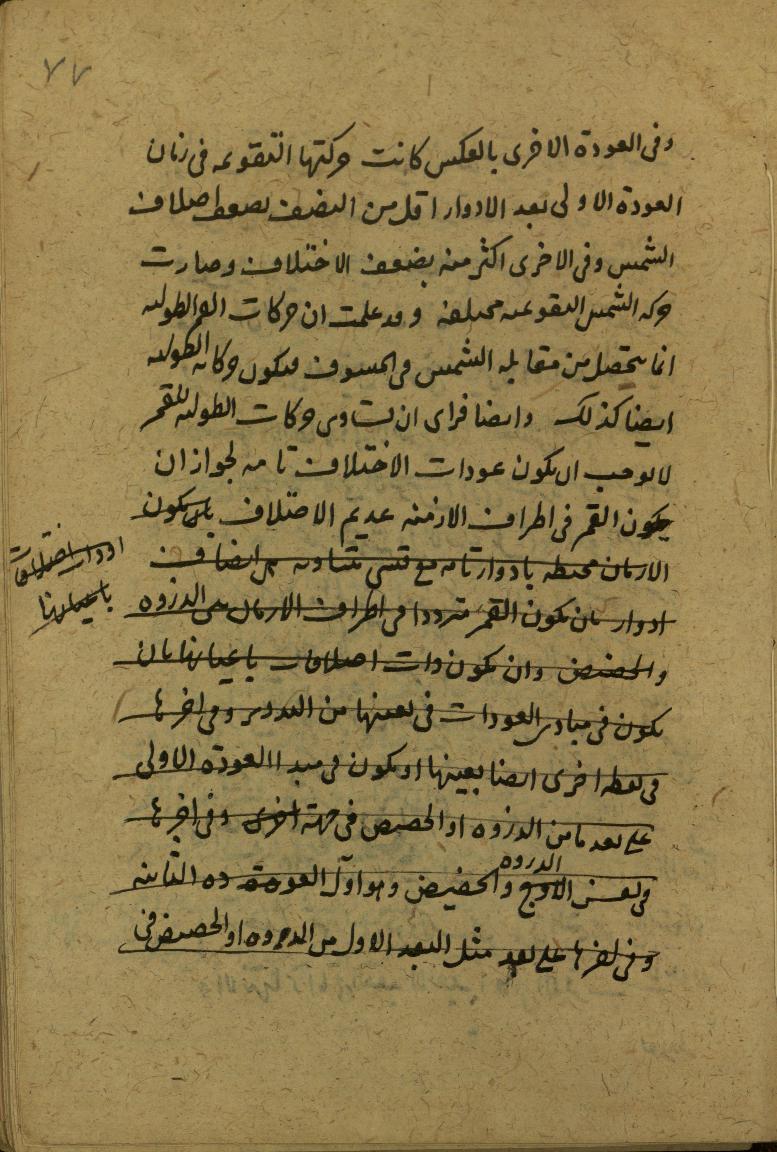 ٧٧
وفى العودة الاخرى بالعكس كانت حركتها التقويمه فى زمان
العودة الاولى بعد الادوار اقل من النصف بضعف اختلاف
الشمس وفى الاخرى اكثر منه بضعف الاختلاف وصارت
حركه الشمس التقويميه مختلفه وقد علمت ان حركات القمر الطوليه
انما يتحصل من مقابله الشمس فى الخسوف فيكون حركاته الطوليه
ايضا كذلك وايضا فراى ان تساوى حركات الطوليه للقمر
لا يوجب ان يكون عودات الاختلاف تامه لجواز ان
يكون القمر فى اطراف الازمنه عديم الاختلاف بان يكون
الازمان محيطه بادوار تامه مع قسى متساويه من انصاف
ادوار بان يكون القمر مترددا فى اطراف الازمان بين الذروه
والحضيض وان يكون ذات اختلافات باعيانها بان
يكون فى مبادى العودات فى بعينها من التدوير وفى اخرها
فى نقطه اخرى ايضا بعينها او يكون فى مبدا العودة الاولى
على بعد ما من الذروه او الحضيض فى جهة اخرى وفى اخرها
فى نفس الاوج والحضيض وهو اول العودة الثانيه
الذروه
وفى اخرها على بعد مثل البعد الاول من الذروه او الحضيض فى
او ذات اختلافات
باعيانها